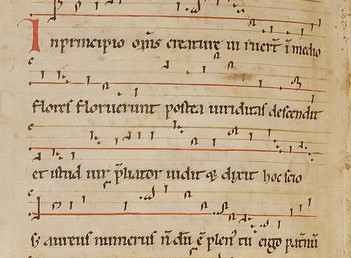 In principio om̅s creature ui ruer̅t i̅ medio
flores floruerunt postea uiriditas descendit
et istud uir p̅liator uidit q̅ dixit hoc scio
S; aureus numerus n̅ du̅ e̅ plen' tu ergo pat̅nu̅